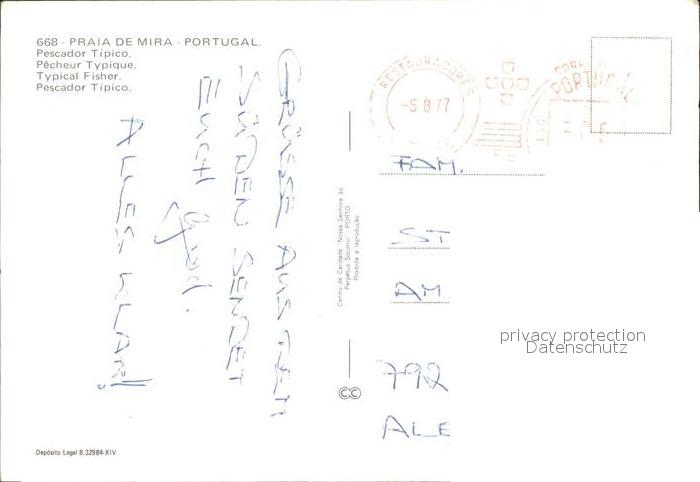 668 - PRAIA DE MIRA - PORTUGAL.
Pescador Típico.
Pêcheur Typique.
Typical Fisher.
Pescador Típico.
GRÜSSE AUS DEM
SÜDEN SENDET
EUCH
ALLES KLAR!
Centro de Caridade "Nossa Senhora do
Perpétuo Socorro" - PORTO
Proibida a reprodução
RESTAURADORES
-5.8.77
CORREIO
PORTUGAL
FAM.
ST
AM
792
ALE
privacy protection
Datenschutz
CC
Depósito Legal B.32984-XIV